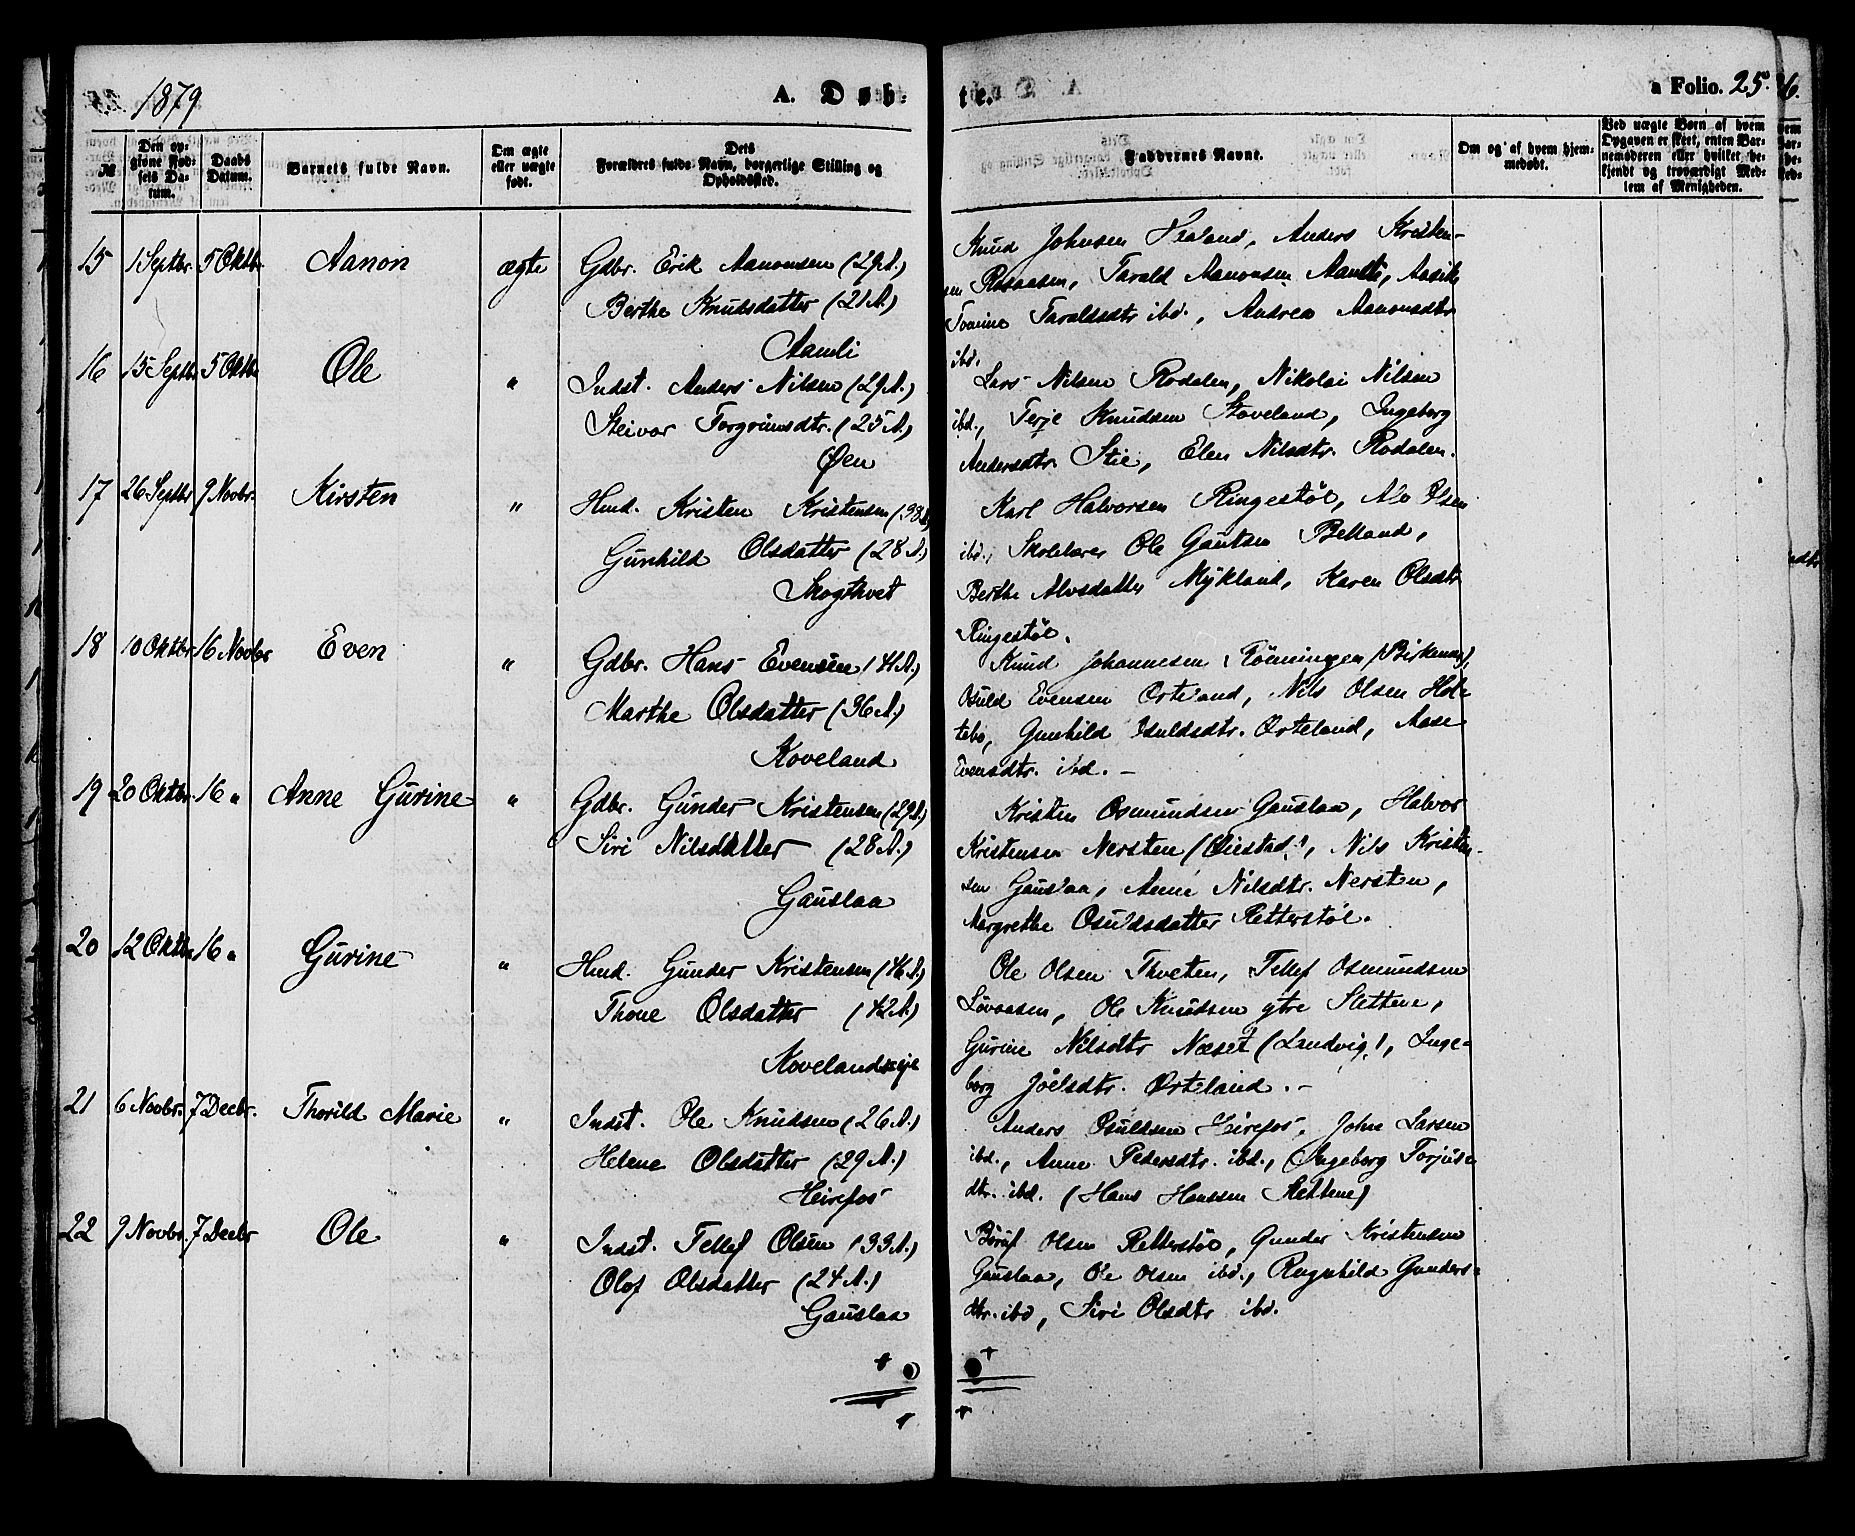 1879
A. Døb-
te.
a Folio. 25.
№
Den op-
givne Fød-
sels Da-
tum.
Daabs
Datum.
Barnets fulde Navn.
Om ægte
eller uægte
født.
Dets
Forældres fulde Navn, borgerlige Stilling og
Opholdssted.
Faddernes Navne.
Om og af hvem hjem-
medøbt.
Ved uægte Børn af hvem
Opgaven er skeet, enten Bar-
nemoderen eller hvilket be-
kjendt og troværdigt Med-
lem af Menigheden.
15 1 Septbr. 5 Oktbr. Aanon ægte Gdbr. Erik Aanonsen (29A.)
Berthe Knudsdatter (21A.)
Aamli
Knud Johnsen Hialand, Anders Kristen-
sen Rosaasen, Tarald Aanonsen Aamli, Aasil
Tomine Taraldsdtr ibd., Andrea Aanonsdtr
ibd.
16 15 Septbr 5 Oktbr Ole " Indst. Anders Nilsen (29A.)
Steivor Torgrimsdtr. (25A.)
Øen
Lars Nilsen Rodalen, Nikolai Nilsen
ibd., Terje Knudsen Stoveland, Ingeborg
Andersdtr. Stie, Elen Nilsdtr. Rodalen.
17 26 Septbr 9 Novbr. Kirsten " Hmd. Kristen Kristensen (38A)
Gunhild Olsdatter (28A.)
Skogthvet
Karl Halvorsen Ringestøl, Alv Olsen
ibd., Skolelærer Ole Gautsen Belland,
Berthe Alvsdatter Mykland, Karen Olsdtr
Ringestøl.
18 10 Oktbr 16 Novbr Even " Gdbr. Hans Evensen (41A.)
Marthe Olsdatter (36A.)
Koveland
Knud Johannesen Flønningen (Birkenes),
Osuld Evensen Orteland, Nils Olsen Hol-
tebo, Gunhild Osuldsdtr. Orteland, Aase
Evensdtr. ibd. –
19 20 Oktbr. 16 " Anne Gurine " Gdbr. Gunder Kristensen (29A.)
Siri Nilsdatter (28A.)
Gauslaa
Kristen Osmundsen Gauslaa, Halvor
Kristensen Nersten (Øiestad), Nils Kristen-
sen Gauslaa, Anne Nilsdtr. Nersten,
Margrethe Osuldsdatter Retterstøl.
20 12 Oktbr 16 " Gurine " Hmd. Gunder Kristensen (46A.)
Thone Olsdatter (42A.)
Kovelandseje
Ole Olsen Thveten, Tellef Osmundsen
Løvaasen, Ole Knudsen ytre Slettene,
Gurine Nilsdtr Næset (Landvig), Inge-
borg Joelsdtr. Orteland. –
21 6 Novbr. 7 Decbr. Thorild Marie " Indst. Ole Knudsen (26A.)
Helene Olsdatter (29A.)
Heirefos
Anders Osuldsen Heirefos, John Larsen
ibd., Anne Pedersdtr. ibd., (Ingeborg Torjus-
dtr. ibd. (Hans Hanssen Slettene)
22 9 Novbr. 7 Decbr Ole " Indst. Tellef Olsen (33A.)
Olof Olsdatter (24A.)
Gauslaa
Børuf Olsen Retterstøl, Gunder Kristensen
Gauslaa, Ole Olsen ibd., Ragnhild Gunders-
dtr. ibd, Siri Olsdtr ibd.